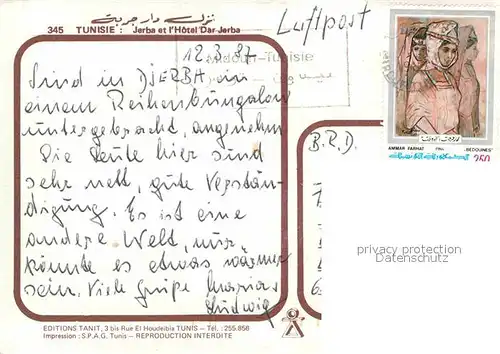 نزل دار جربة
345 TUNISIE : Jerba et l'Hôtel Dar Jerba
Luftpost
12.3.87
Tunisie
Sind in DJERBA in
einem Reihenbungalow
untergebracht, angenehm
Die Leute hier sind
sehr nett, gute Verstän-
digung. Es ist eine
andere Welt, nur
könnte es etwas wärmer
sein. Viele Grüße
Ludwig
B.R.D.
AMMAR FARHAT „BEDOUINES"
250
privacy protection
DATENSCHUTZ
EDITIONS TANIT, 3 bis Rue El Houdeibia TUNIS - Tél. : 255.856
Impression : S.P.A.G. Tunis - REPRODUCTION INTERDITE